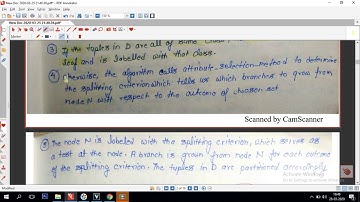 New Doc 2020-03-25 21.40.06.pdf - PDF Annotator
③ If the tuples in D are all of same
leaf and is labelled with that class.
④ Otherwise, the algorithm calls attribute-selection-method to determine
the splitting criterion which tells us which branches to grow from
node N with respect to the outcome of chosen set
Scanned by CamScanner
⑤ The node N is labeled with the splitting criterion, which serves as
a test at the node. A branch is grown from node N for each outcome
of the splitting criterion. The tuples in D are partitioned accordingly
Activate Windows